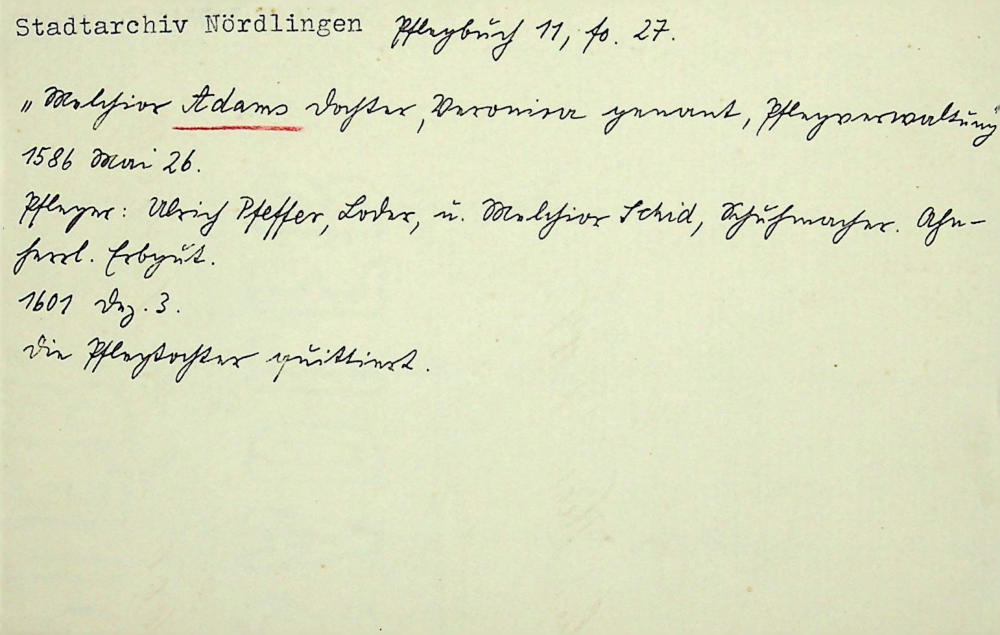 Stadtarchiv Nördlingen Pflegbuch 11, fo. 27.
"Melchior Adams Dochter, Veronica genant, Pflegverwaltung"
1586 Mai 26.
Pfleger: Ulrich Pfeffer, Loder, u. Melchior Schid, Schuhmacher. Ahn-
herrl. Erbgut.
1601 Dez. 3.
Die Pflegtochter quittiert.